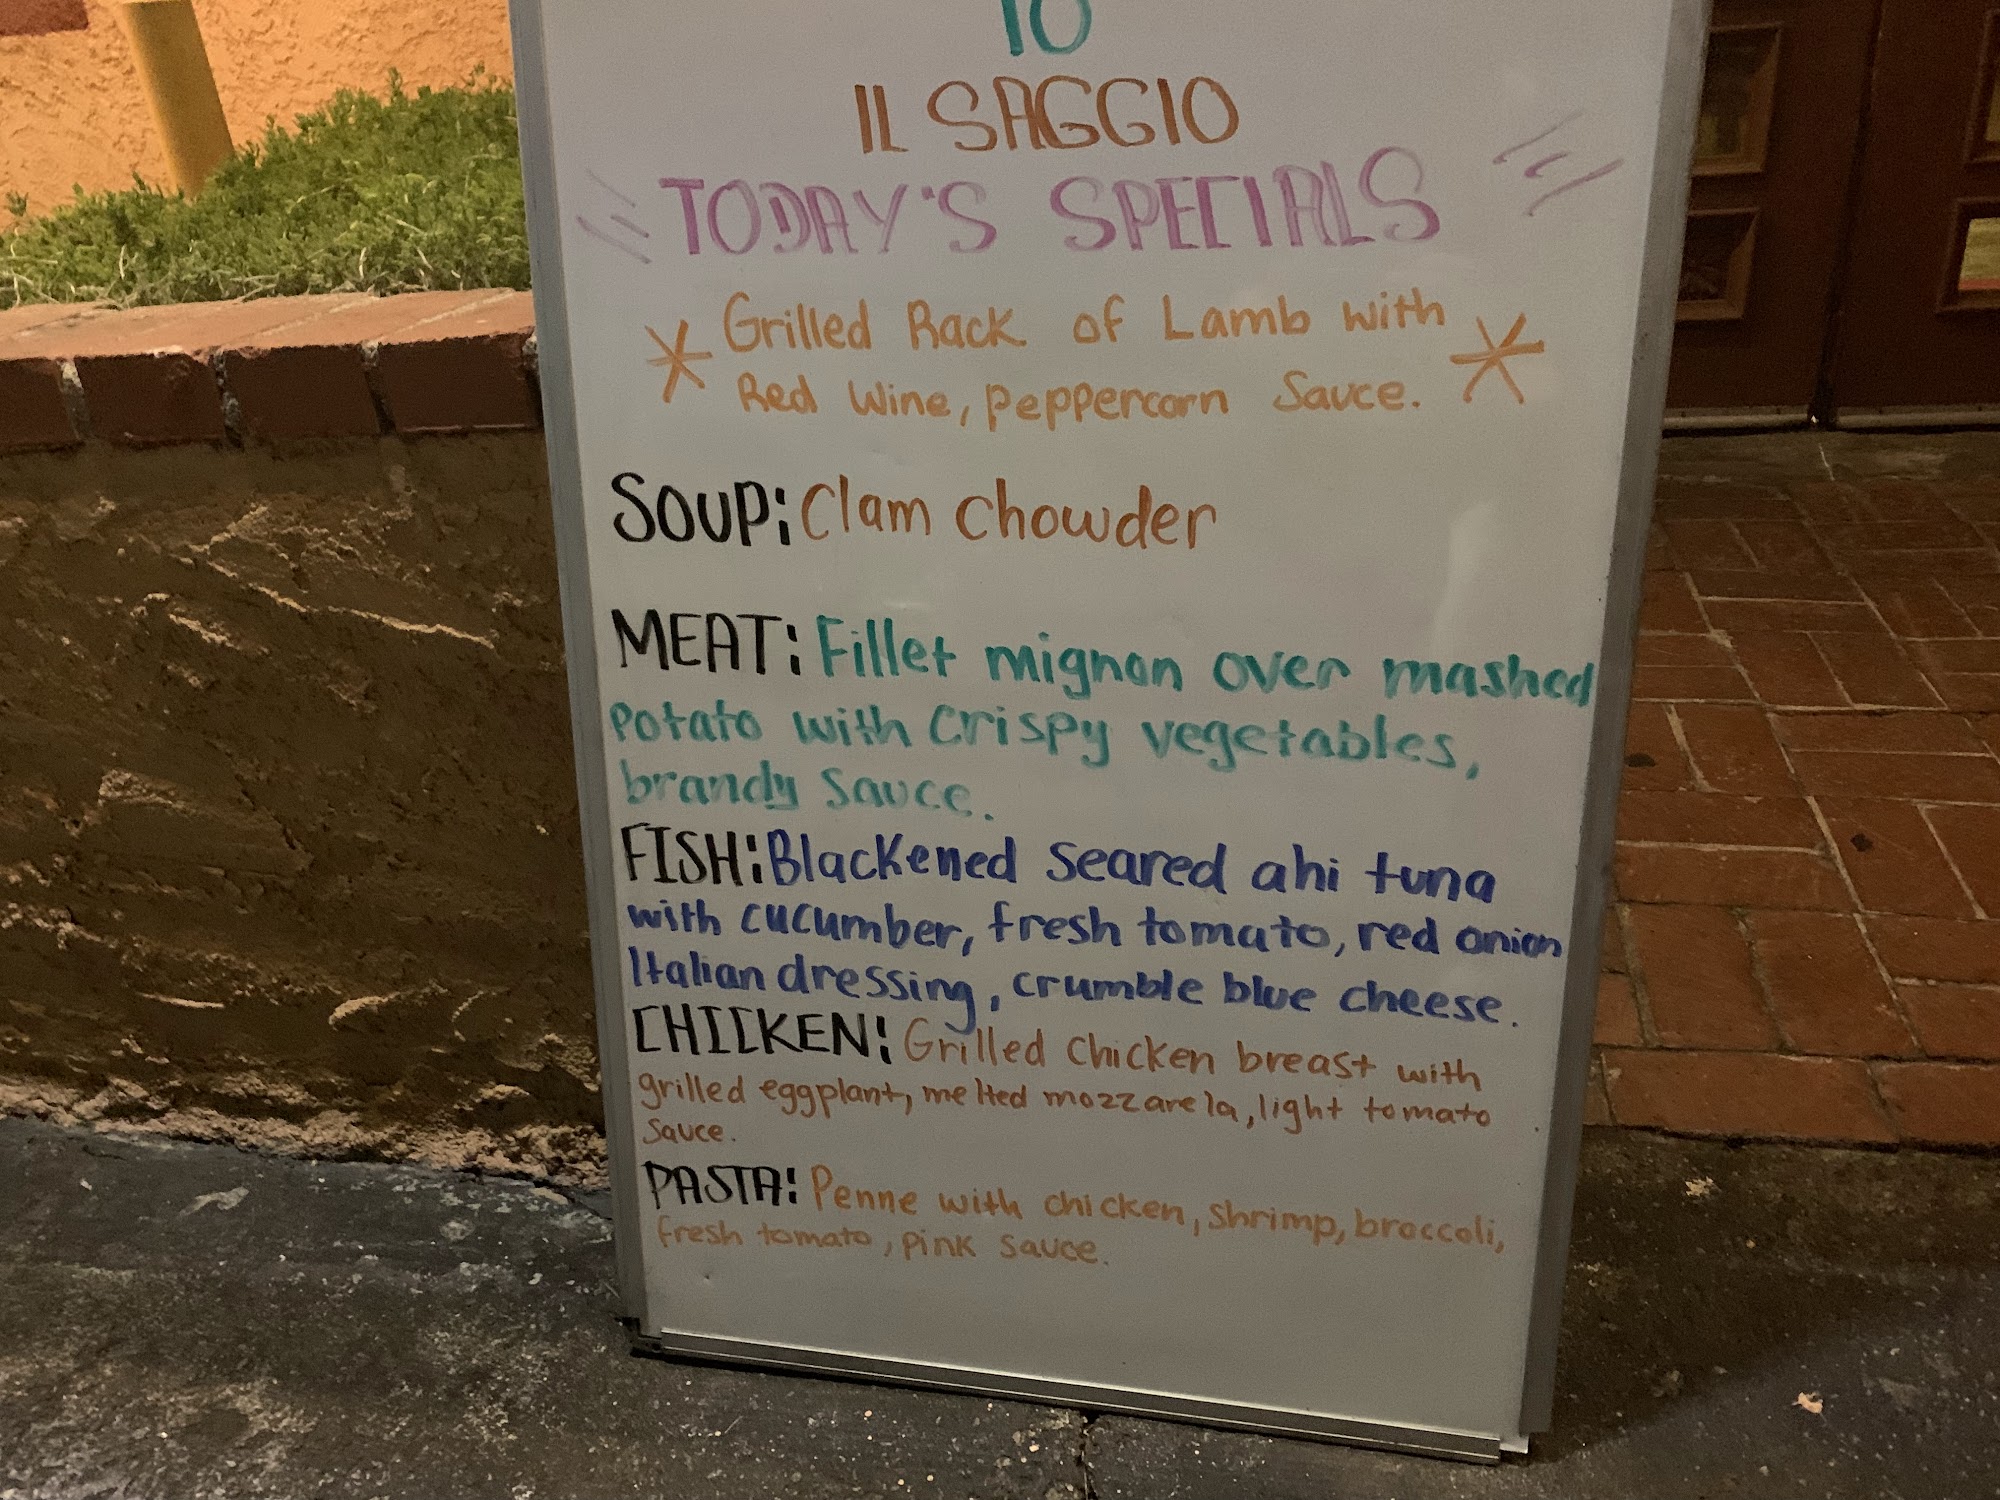 TO
IL SAGGIO
TODAY'S SPECIALS
Grilled Rack of Lamb with
Red Wine, peppercorn Sauce.
SOUP: Clam Chowder
MEAT: Fillet mignon over mashed
potato with crispy vegetables,
brandy sauce.
FISH: Blackened seared ahi tuna
with cucumber, fresh tomato, red onion
Italian dressing, crumble blue cheese.
CHICKEN: Grilled Chicken breast with
grilled eggplant, melted mozzarela, light tomato
sauce.
PASTA: Penne with chicken, shrimp, broccoli,
fresh tomato, pink sauce.